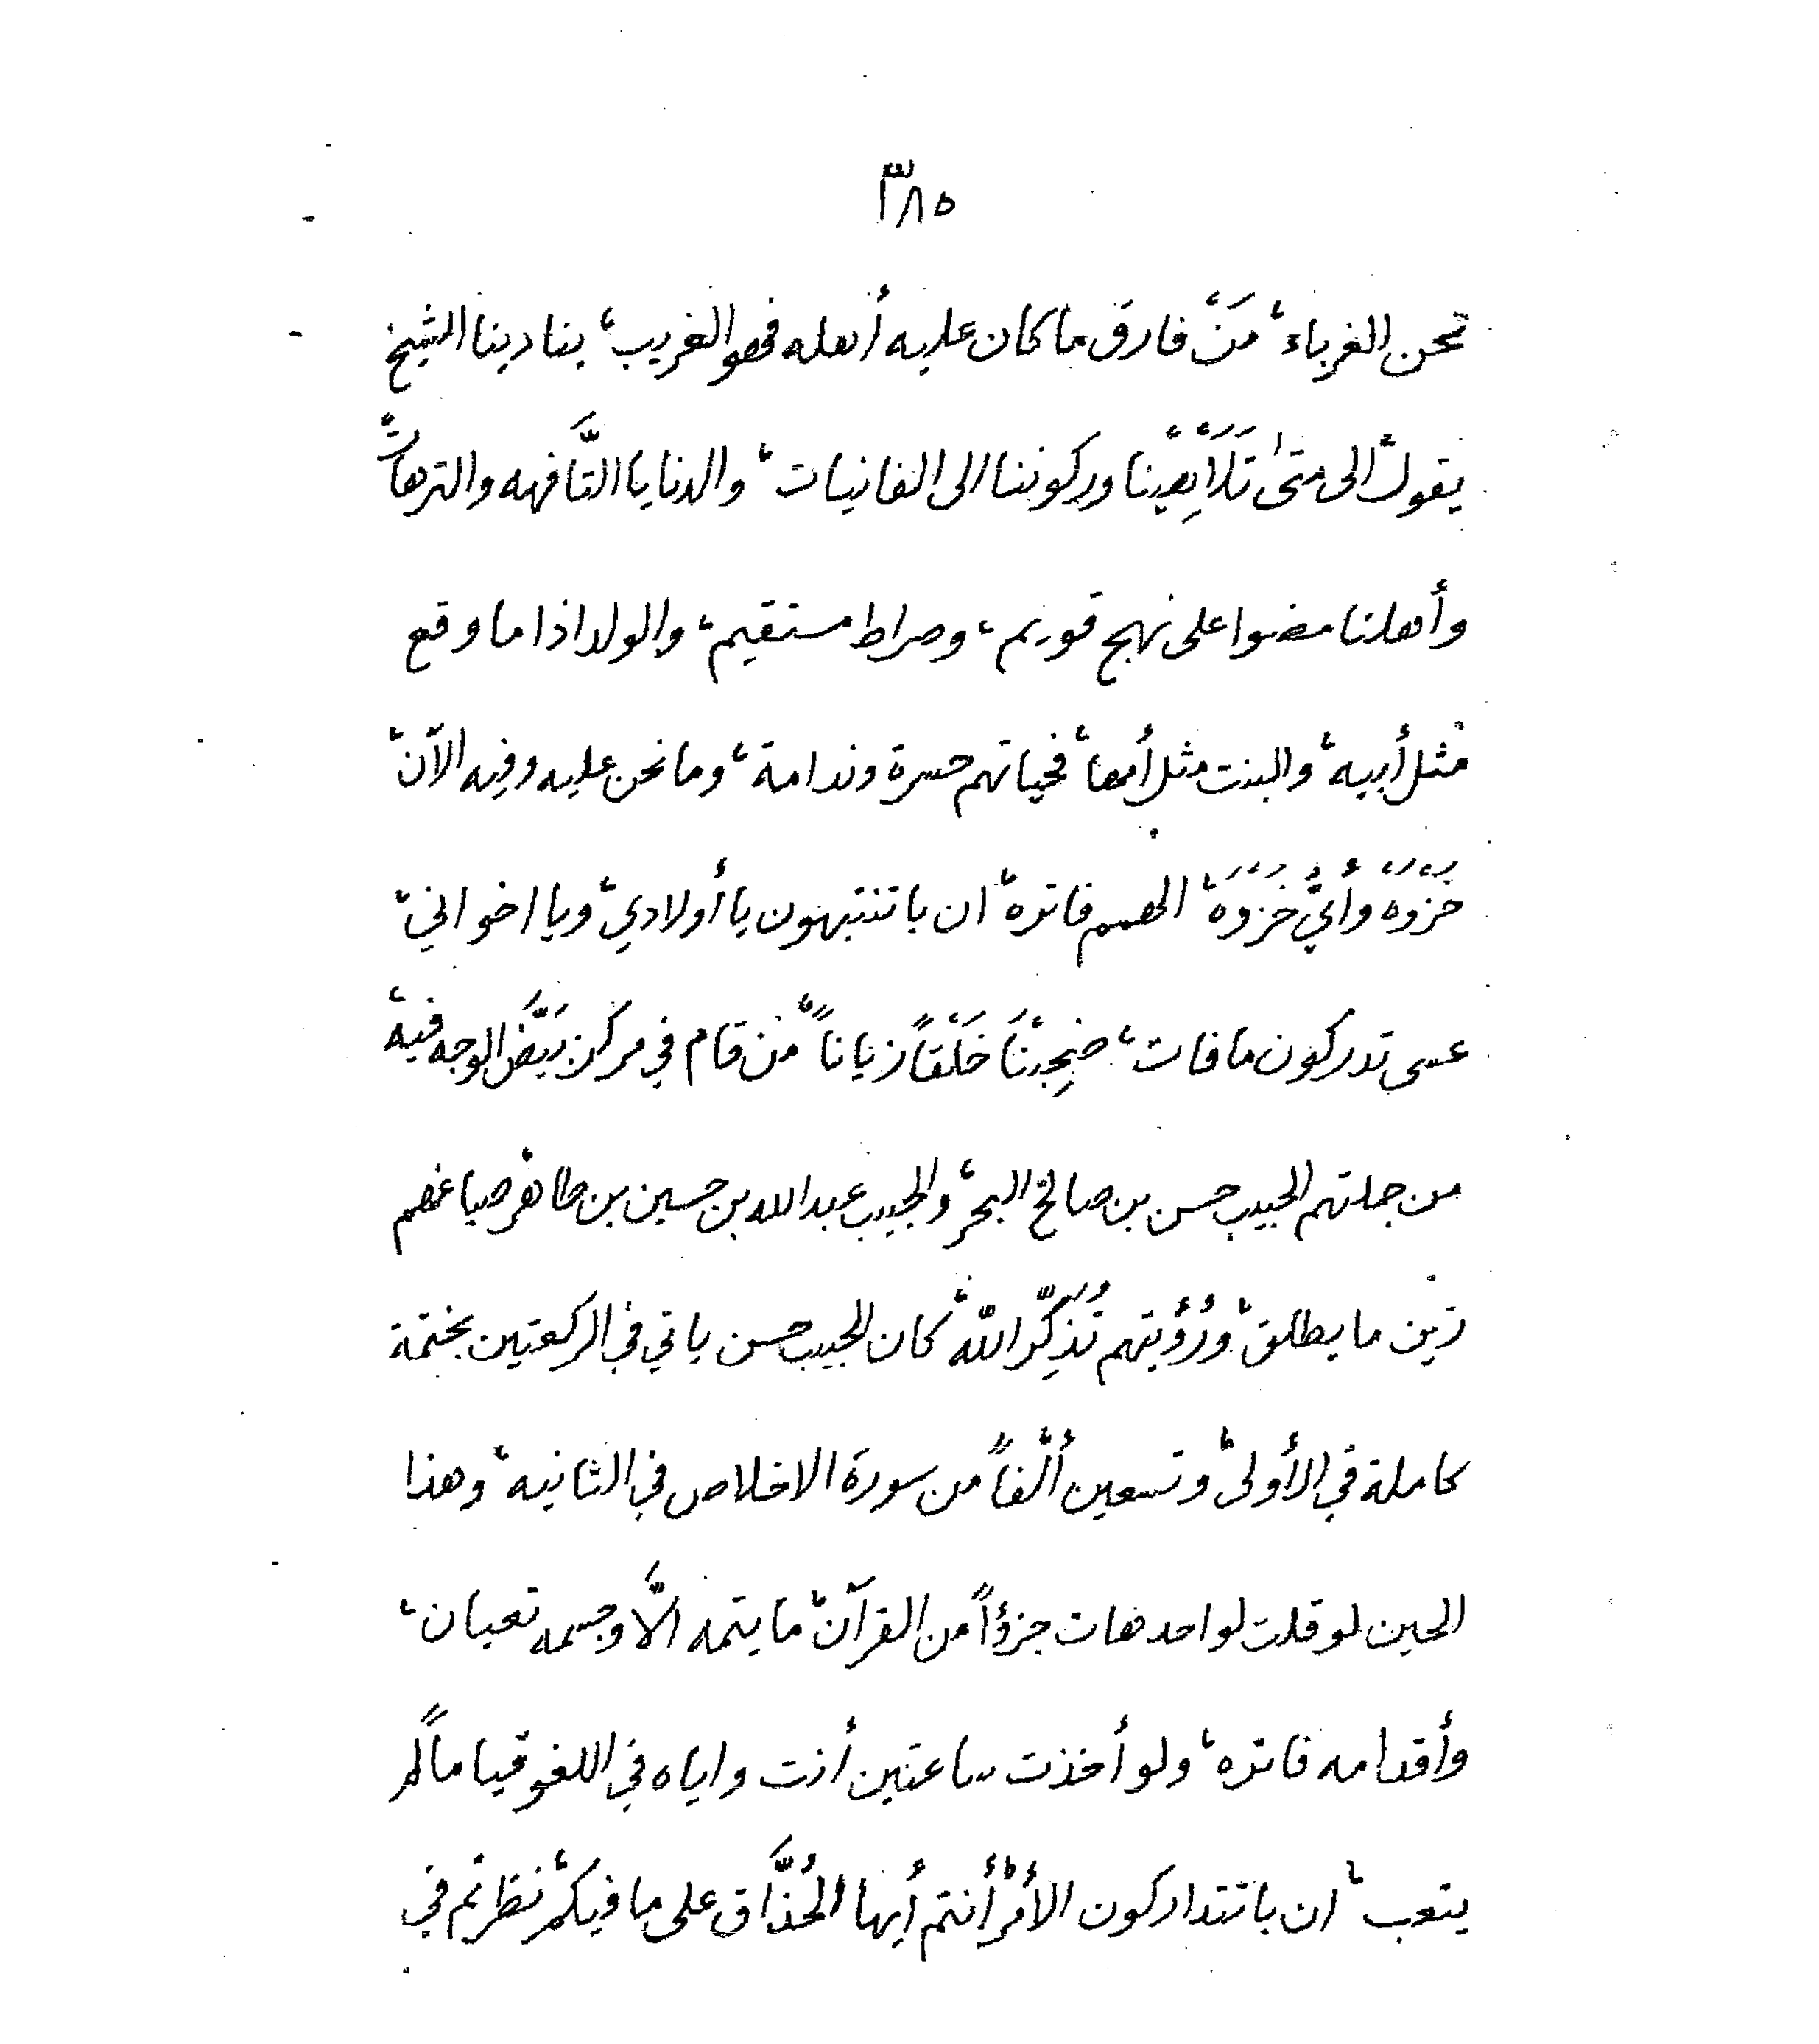 ٣٨٥
نحن الغرباء، مَنْ فارق ما كان عليه أهله فهو الغريب، ينادينا الشيخ
يقول، الى متى تَلَابِيْنا وركوننا الى الفانيات، والدنايا التَّافهه والترهات،
وأهلنا مضوا على نهج قويم، وصراط مستقيم، والولد اذا ما وقع
مثل أبيه، والبنت مثل أمها، فحياتهم حسرة وندامة، وما نحن عليه وفيه الآن،
خَزْوَهْ وأيُّ خَزْوَهْ، الهمم فاتره، ان با تنتبهون يا أولادي، ويا اخواني،
عسى تدركون ما فات، ضِحِبْنَا خَلْقاً زياناً، من قام في مركز بَيَّضْ الوجه فيه،
من جملتهم الحبيب حسن بن صالح البحر، والحبيب عبدالله بن حسين بن طاهر، صياغهم
زين ما يطلق، ورُؤيتهم تُذَكِّر الله، كان الحبيب حسن ياتي في الركعتين بختمة
كاملة في الأولى، وتسعين ألْفاً من سورة الاخلاص في الثانيه، وهذا
الحين لو قلت لواحد هات جزؤاً من القرآن، ما يتمه الَّا وجسمه تعبان،
وأقدامه فاتره، ولو أخذت ساعتين أنت واياه في اللغو قياماً لم
يتعب، ان با تتداركون الأمْر، أنتم أيها الحُذَّاق على ما فيكم، نظرتم في